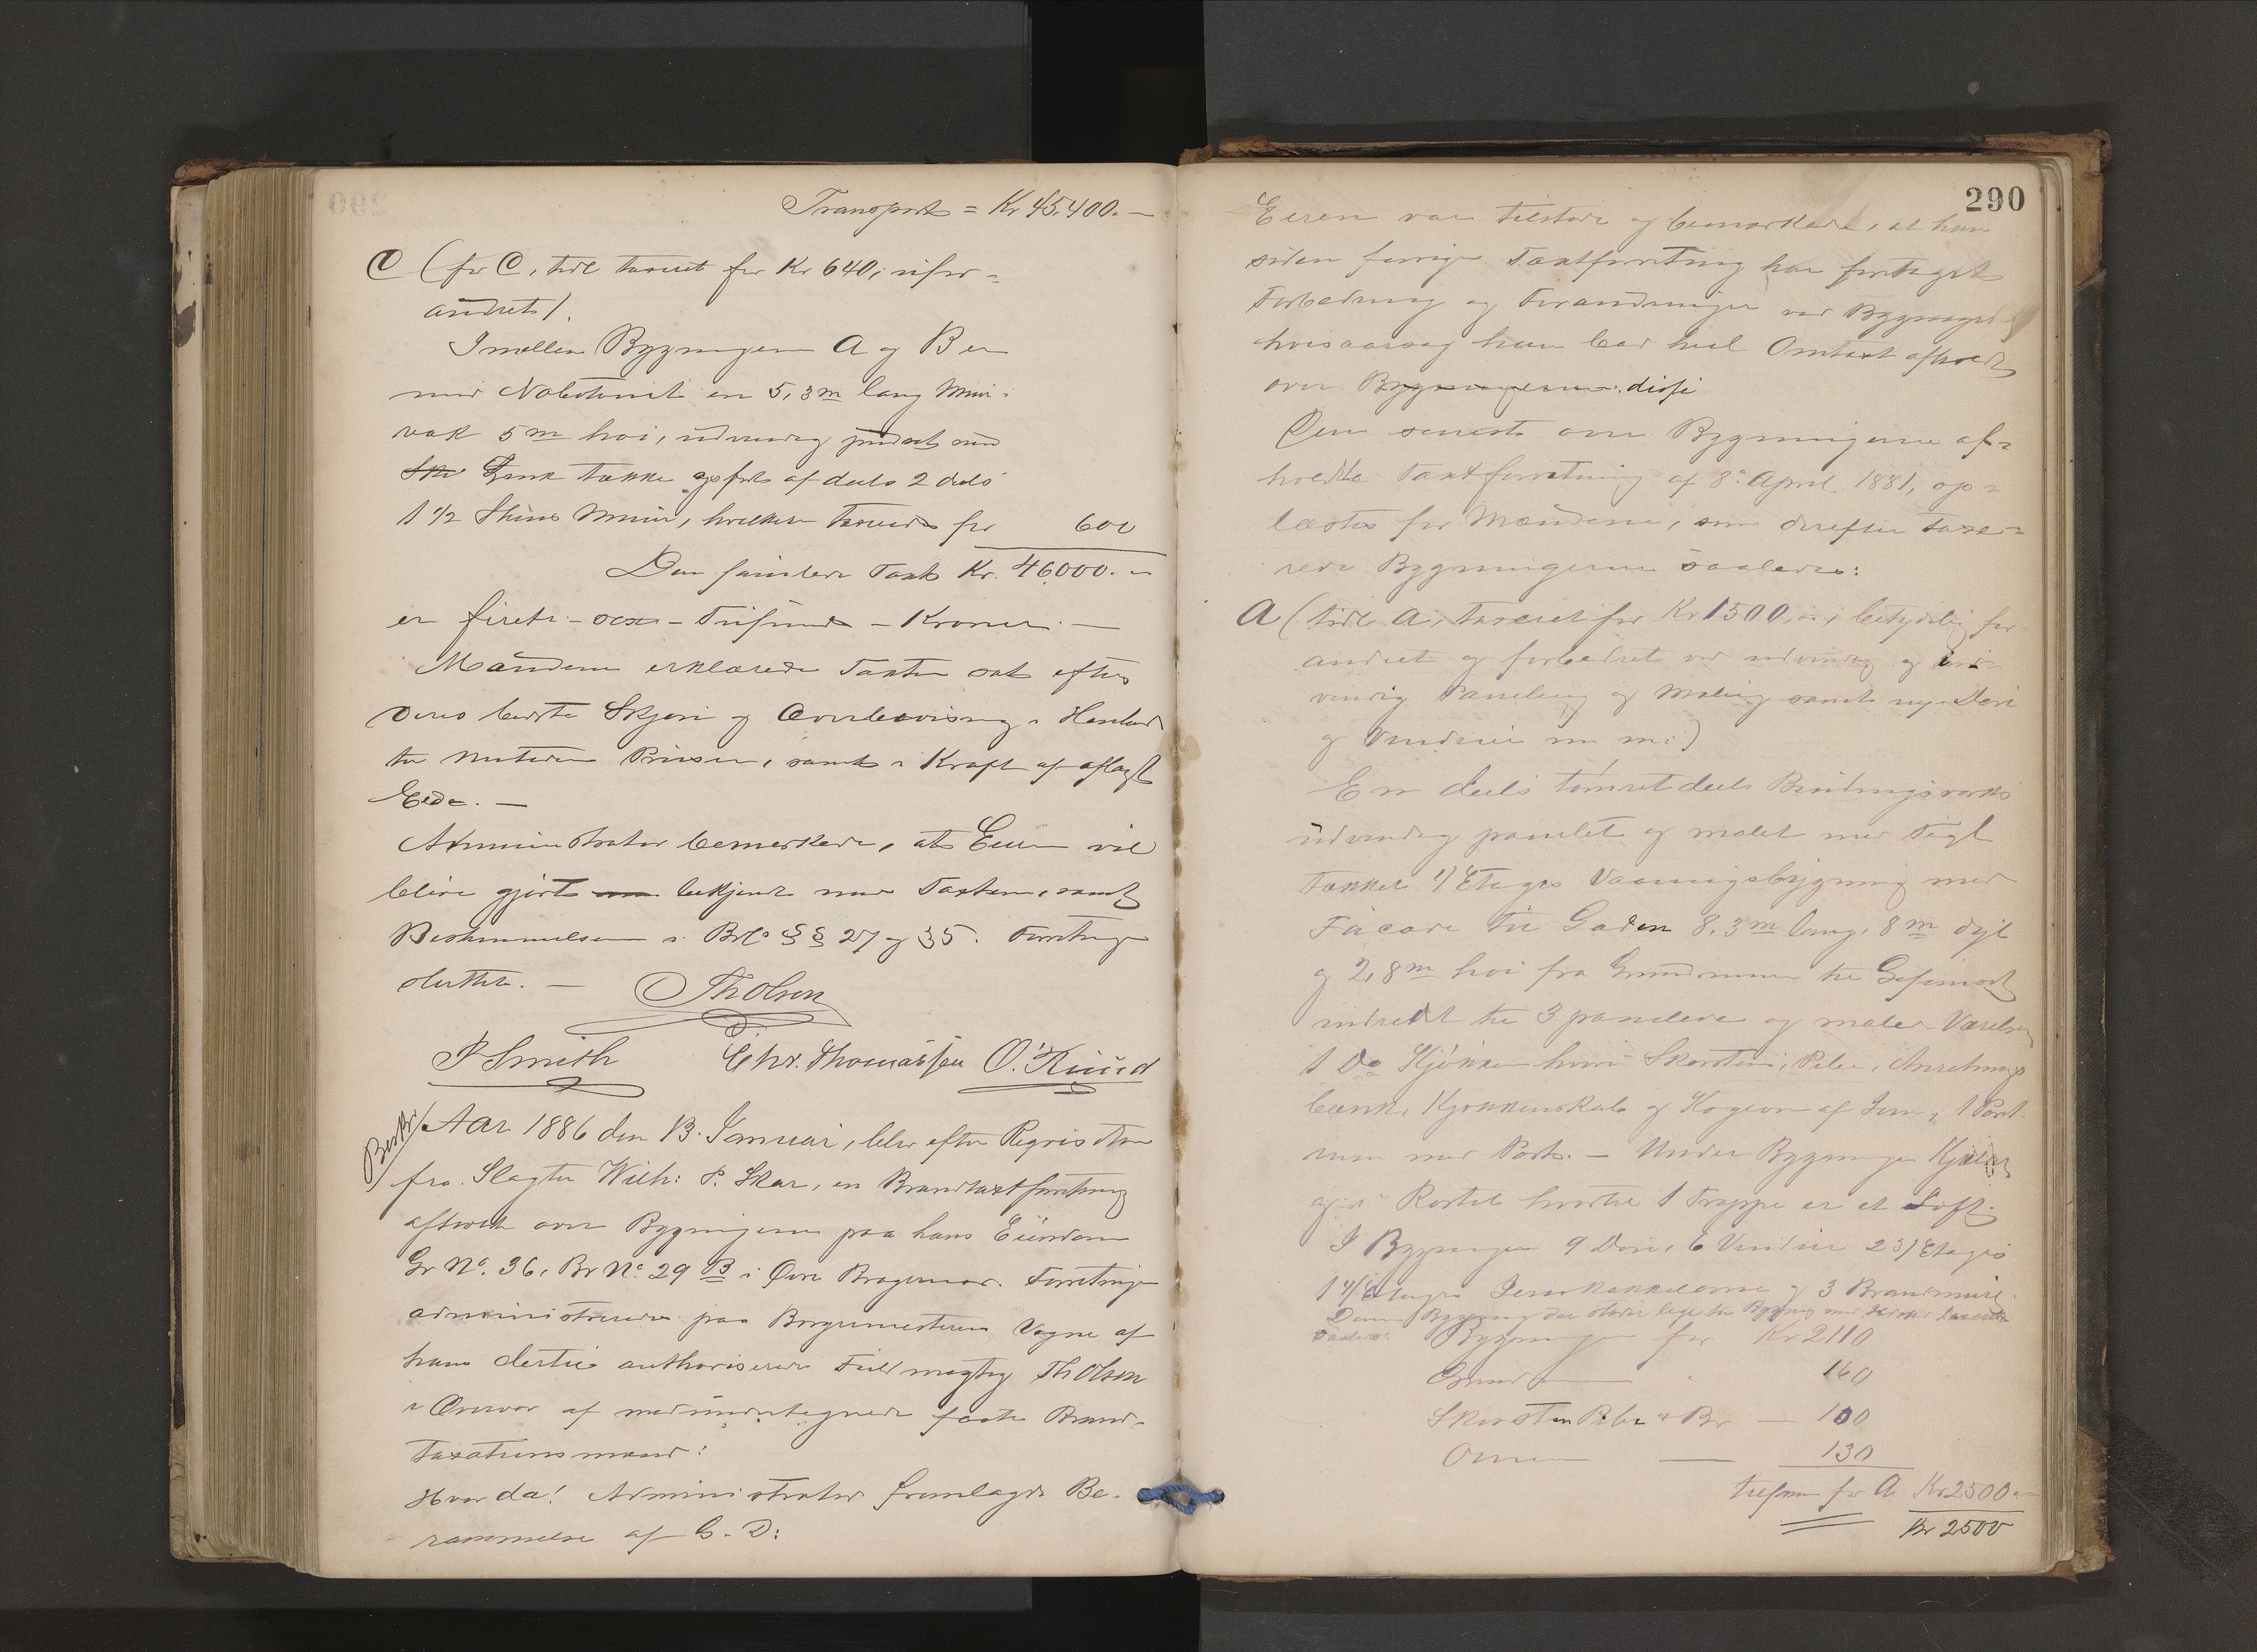 Transport = Kr 45,400. —
C (før C, tidl taxeret for Kr 640, ufor-
andret).
Imellem Bygningen A og B er
mod Nabotomt en 5,3 m lang Muur
5 m høi, udvendig pudset med
Zink tække opført af deels 2 deels
1 1/2 Steens Muur, hvilken taxeredes for 600
Den samlede Taxt Kr. 46,000. –
er fireti - sex - Tusinde - Kroner. —
Mændene erklærede Taxten sat efter
deres bedste Skjøn og Overbevisning i Henhold
til nutidens Priser, samt i Kraft af aflagt
Eed. —
Administrator bemærkede, at Eieren vil
blive gjort bekjendt med Taxten, samt
Bestemmelsen i Brl. §§ 27 og 35. Forretningen
sluttet. —
Th Olsen
P Smith Chr. Thomassen O. Ruud
Beskr.
Aar 1886 den 13. Januar, blev efter Reqvisition
fra Slagter Wilh: P. Skar, en Brandtaxtforretning
afholdt over Bygningerne paa hans Eiendom
Gr No. 36, Br No. 29 B i Øvre Bragernes. Forretningen
administreredes paa Borgermesterens Vegne af
hans dertil authoriserede Fuldmægtig Th Olsen
i Overvær af medundertegnede faste Brand-
taxationsmænd:
Hvorda! Administrator fremlagde Be-
rammelse af G. D:
290
Eieren var tilstede og bemærkede, at han
siden forrige Taxtforretning har foretaget
Forbedring og Forandringer ved Bygningerne
hvisaarsag han bad heel Omtaxt afholdt
over Bygningerne. disse
Den seneste over Bygningerne af-
holdte Taxtforretning af 8. April 1881, op-
læstes for Mændene, som derefter taxe-
rede Bygningerne saaledes:
A (tidl A, taxeret for Kr 1500, betydelig for-
andret og forbedret ved udvendig og ind-
vendig Paneling og Maling samt nye Døre
og Vinduer m m.)
En deels tømret deels Bindingsværks
udvendig panelet og malet med Tegl
tækket 1/ Etages Vaaningsbygning med
Facade til Gaden 8,3 m lang, 8 m dyb
og 2,8 m høi fra Grundmuren til Gesimsen
indredet til 3 panelede og malede Værelser
1 Do Kjøkken hvori Skorsten, Pibe, Anretnings
bænk, Kjøkkenskab og Kogeovn af Jern, 1 Port-
rum med Port. — Under Bygningen Kjælder
og i hvortil 1 Trappe er et Loft.
I Bygningen 9 Døre, 6 Vinduer 2 3/ Etages
1 4/ Etages Jernkakkelovne og 3 Brandmure.
Denne Bygning
saaledes: Bygningen for Kr 2110
Grundmuren " 160
Skorsten Pibe & Br — 100
Ovnene — 130
tilsammen for A Kr 2500. —
Kr 2500